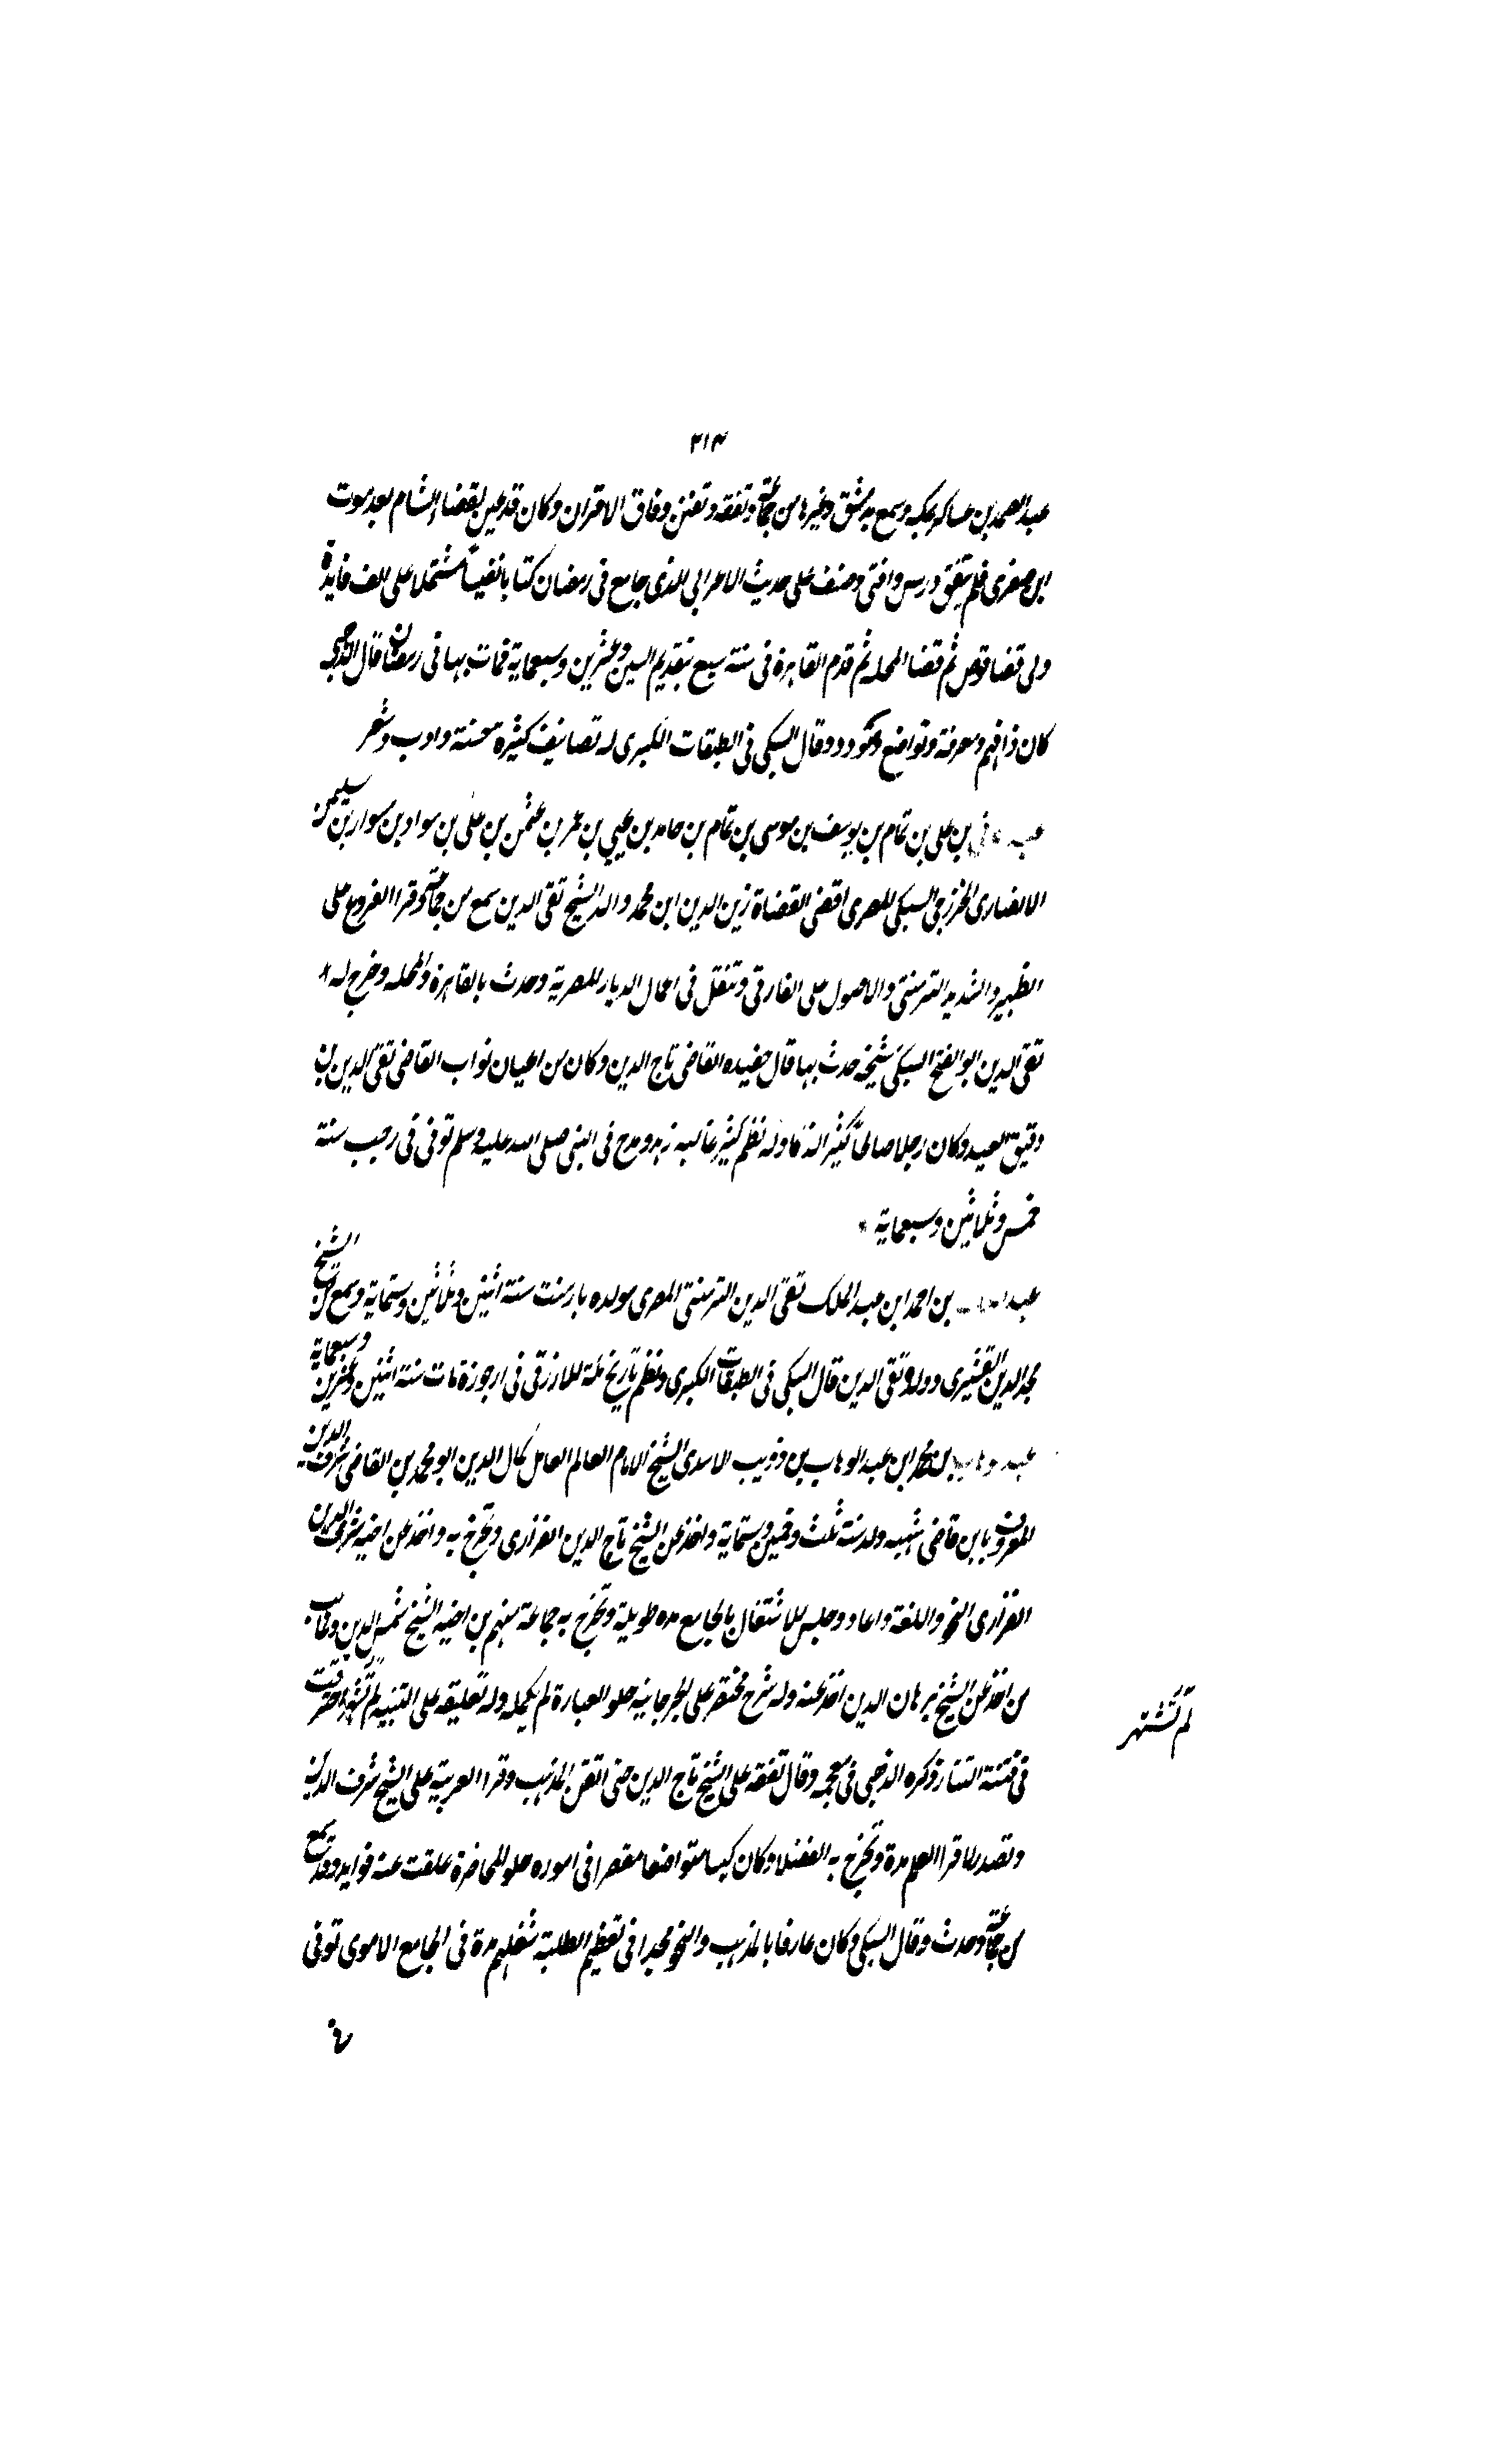 ٣١٣
عبد الصمد بن عساكر بمكه وسمع بدمشق وغيرها من جماعة وتفقه وتفنن وفاق الاقران وكان قد عين لقضاء الشام بعد موت
ابن صصرى فلم يتفق درس وافتى وصنف على حديث الاعرابي الذى جامع فى رمضان كتابا نفيسا مشتملا على الف فايدة
ولى قضا قوص ثم قضا المحله ثم قدم القاهرة فى سنة سبع بتقديم السين وعشرين وسبعماية فمات بها فى رمضان قال الذهبى
كان ذا فهم ومعرفة وتواضع وتودد وقال السبكى فى الطبقات الكبرى له تصانيف كثيرة حسنة وادب وشعر
عبد الكافى بن على بن تمام بن يوسف بن موسى بن تمام بن حامد بن يحيى بن عمر بن عثمن بن على بن سوار بن سوار بن سليمن
الانصارى الخزرجى السبكى المصرى اقضى القضاة زين الدين ابن محمد والد الشيخ تقى الدين سمع من جماعة وقرا الفروع على
الظهير والسديد التزمنتى والاصول على القارقى وتنقل فى اعمال الديار المصرية وحدث بالقاهرة والمحله وخرج له
تقى الدين ابو الفتح السبكى مشيخة حدث بها قال حفيده القاضى تاج الدين وكان من اعيان نواب القاضى تقى الدين بن
دقيق العيد وكان رجلا صالحا كثير الذكر وله نظم كثير غالبه زهد ومدح فى النبى صلى الله عليه وسلم توفى فى رجب سنة
خمس وثلاثين وسبعماية *
عبد بن احمد ابن عبد الملك تقى الدين الترمنتى المصرى مولده بارمنت سنة اثنين وثلاثين وستماية وسمع من الشيخ
مجد الدين القشيرى وولده تقى الدين قال السبكى فى الطبقات الكبرى ونظم تاريخ مكة للازرقى فى ارجوزة مات سنة اثنين وعشرين وسبعماية
عبد الوهاب بن محمد ابن عبد الوهاب بن ذويب الاسدى الشيخ الامام العالم العامل كمال الدين ابو محمد بن القاضى شرف الدين
المعروف بابن قاضى شهبه ولد سنة ثلث وخمسين وستماية واخذ عن الشيخ تاج الدين الفزارى وتخرج به واخذ عن اخيه شرف الدين
الفزارى النحو واللغة واعاد وجلس للاشتغال بالجامع مده طويلة وتخرج به جماعة منهم بن اخيه الشيخ شمس الدين وغالب
من اخذ عن الشيخ برهان الدين اخذ عنه وله شرح مختصر على الجرجانيه حلو العبارة لم يكمله وله تعليقه على التنبيه لم تشتهر احترقت
لم تشتهر
فى فتنة التتار ذكره الذهبى فى معجمه وقال تفقه على الشيخ تاج الدين حتى اتقن المذهب وقرا العربية على الشيخ شرف الدين
وتصدر لاقرا العلم مدة وتخرج به الفضلا وكان كيسا متواضعا مقصرا فى اموره حلو المحاضرة علقت عنه فوايد وقد سمع
من جماعة وحدث وقال السبكى وكان عارفا بالمذهب والنحو مجيدا فى تعظيم الطلبة شغلهم مدة فى الجامع الاموى توفى